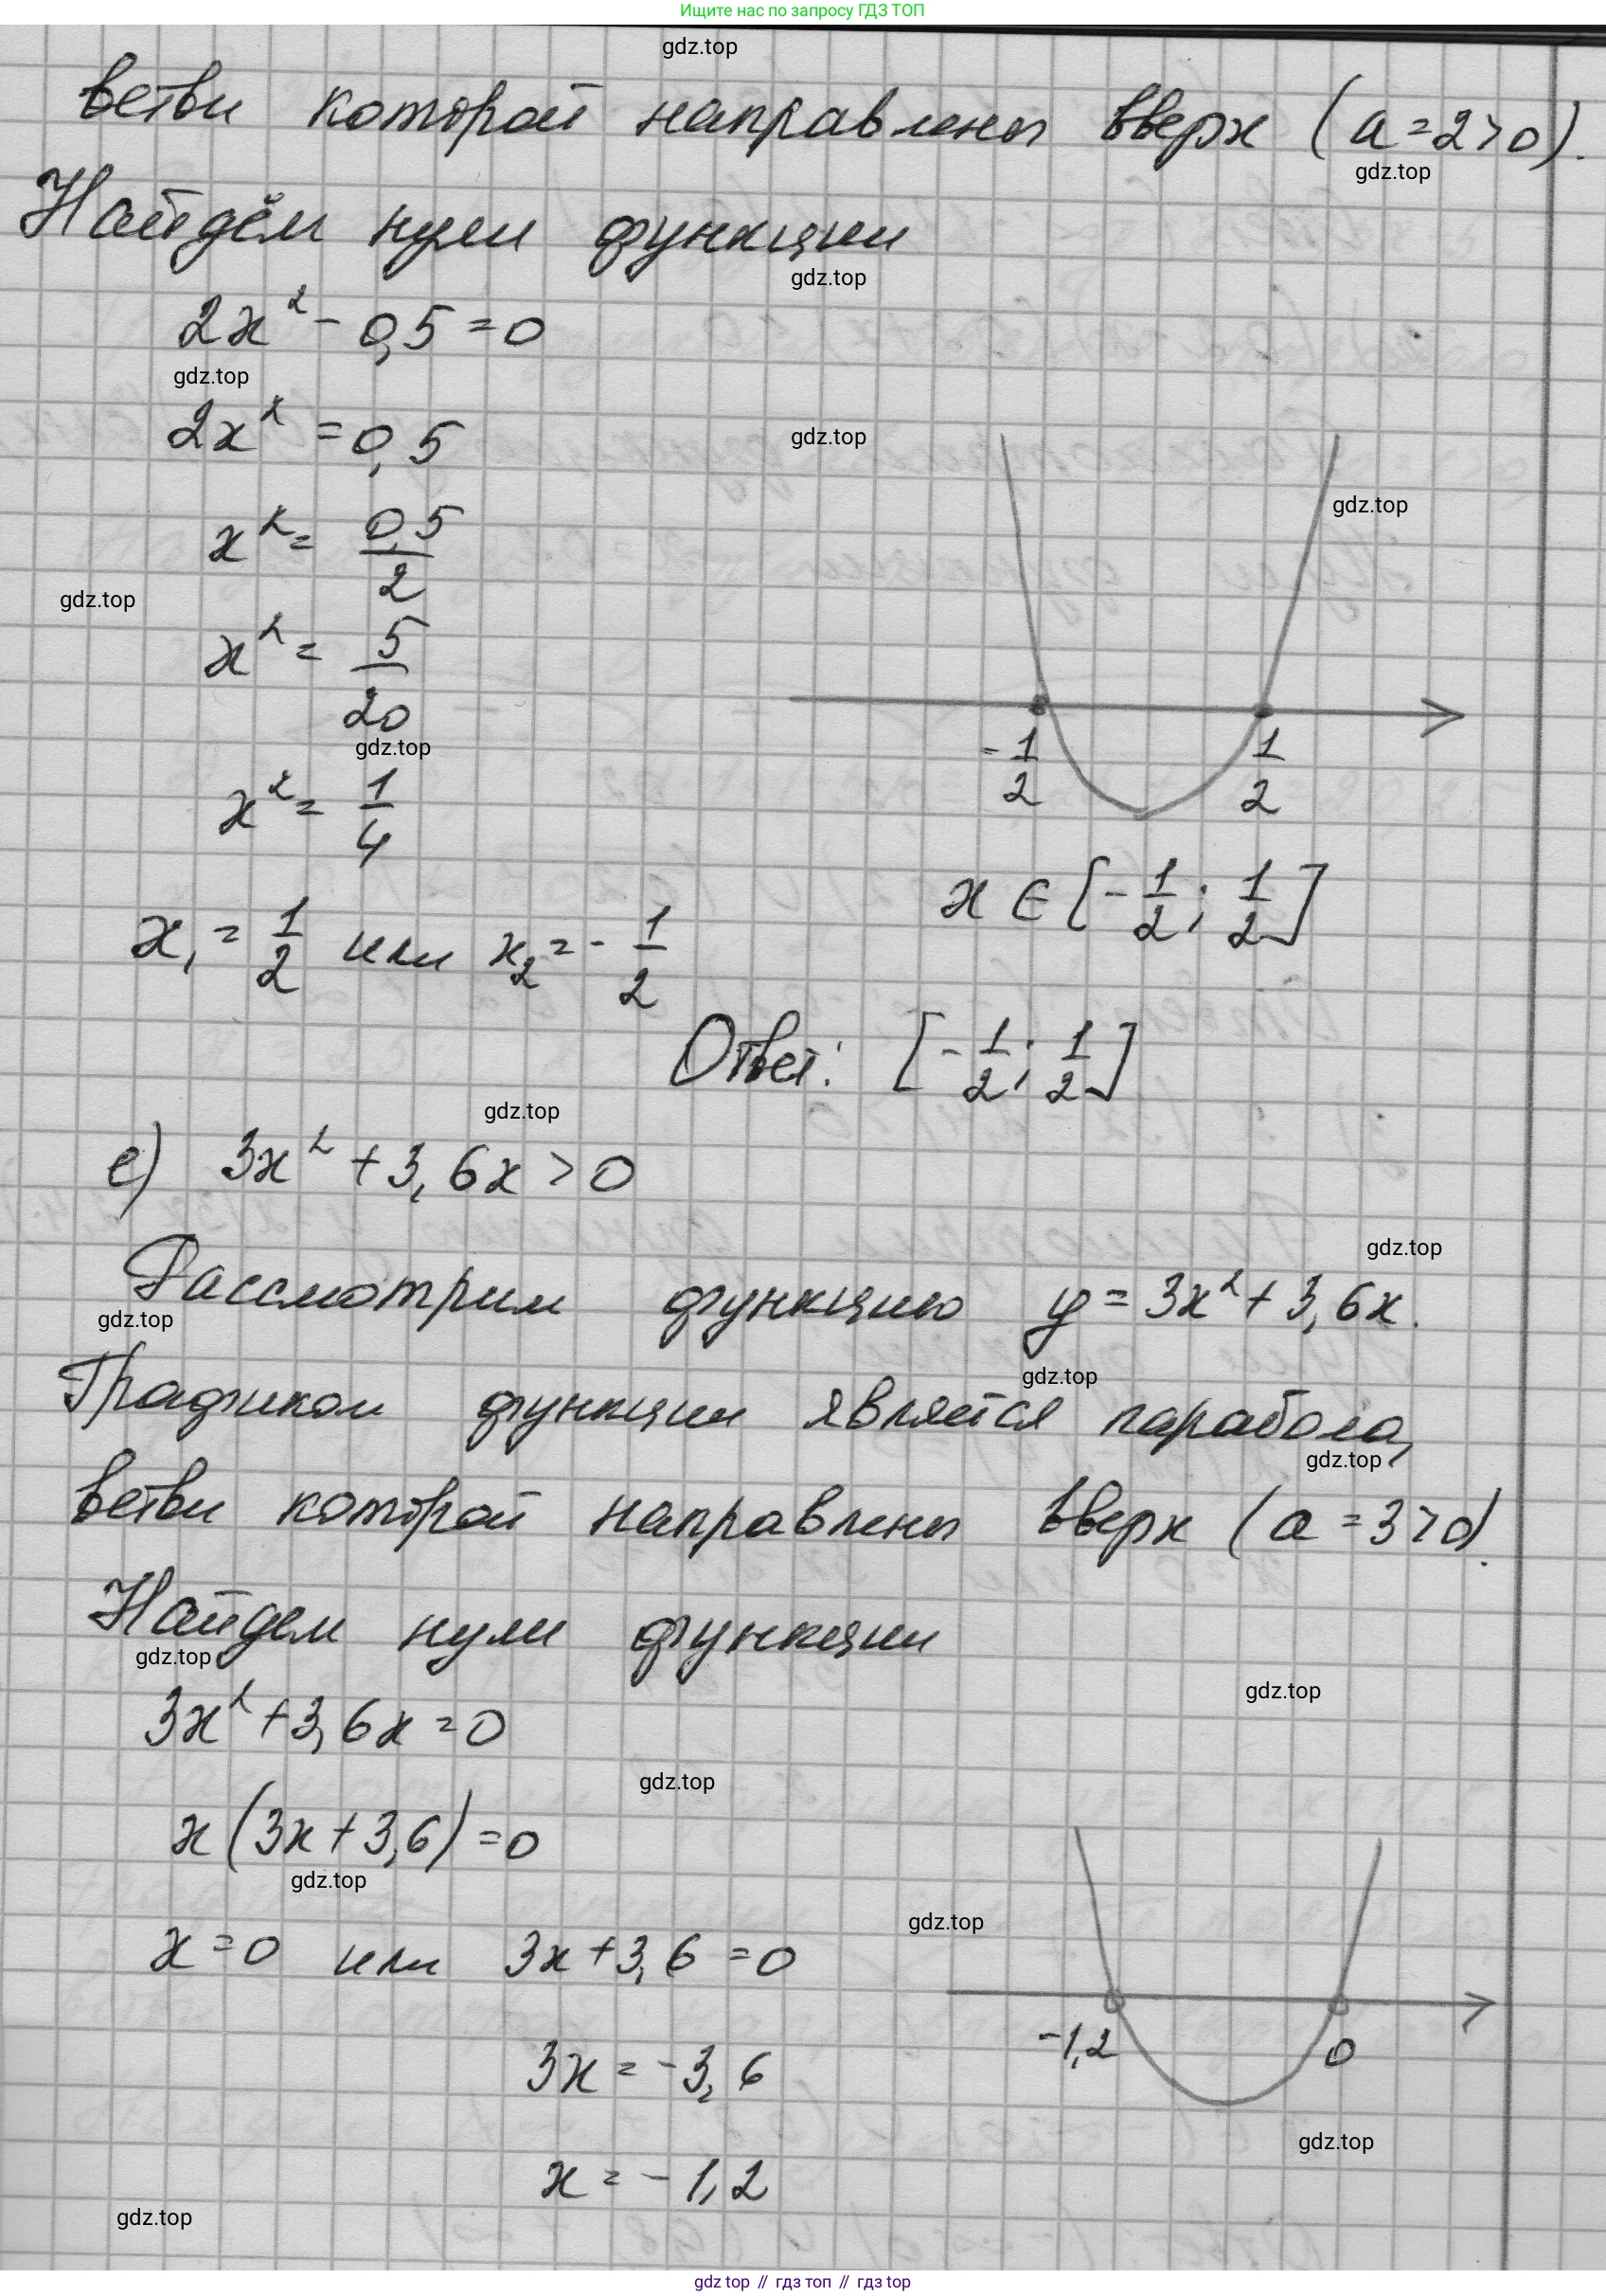 Ищите нас по запросу ГДЗ ТОП
gdz.top
ветви которой направлены вверх (a=2>0).
gdz.top
Найдём нули функции
gdz.top
2x² - 0,5 = 0
gdz.top
2x² = 0,5
gdz.top
gdz.top
x² = 0,5/2
gdz.top
x² = 5/20
gdz.top
-1/2 1/2
x² = 1/4
x ∈ [-1/2; 1/2]
x₁ = 1/2 или x₂ = -1/2
Ответ: [-1/2; 1/2]
gdz.top
е) 3x² + 3,6x > 0
gdz.top
Рассмотрим функцию y = 3x² + 3,6x.
gdz.top
gdz.top
Графиком функции является парабола,
gdz.top
ветви которой направлены вверх (a=3>0).
Найдем нули функции
gdz.top
gdz.top
3x² + 3,6x = 0
gdz.top
x(3x + 3,6) = 0
gdz.top
gdz.top
x = 0 или 3x + 3,6 = 0
-1,2 0
3x = -3,6
gdz.top
x = -1,2
gdz.top
gdz top // гдз топ // gdz top